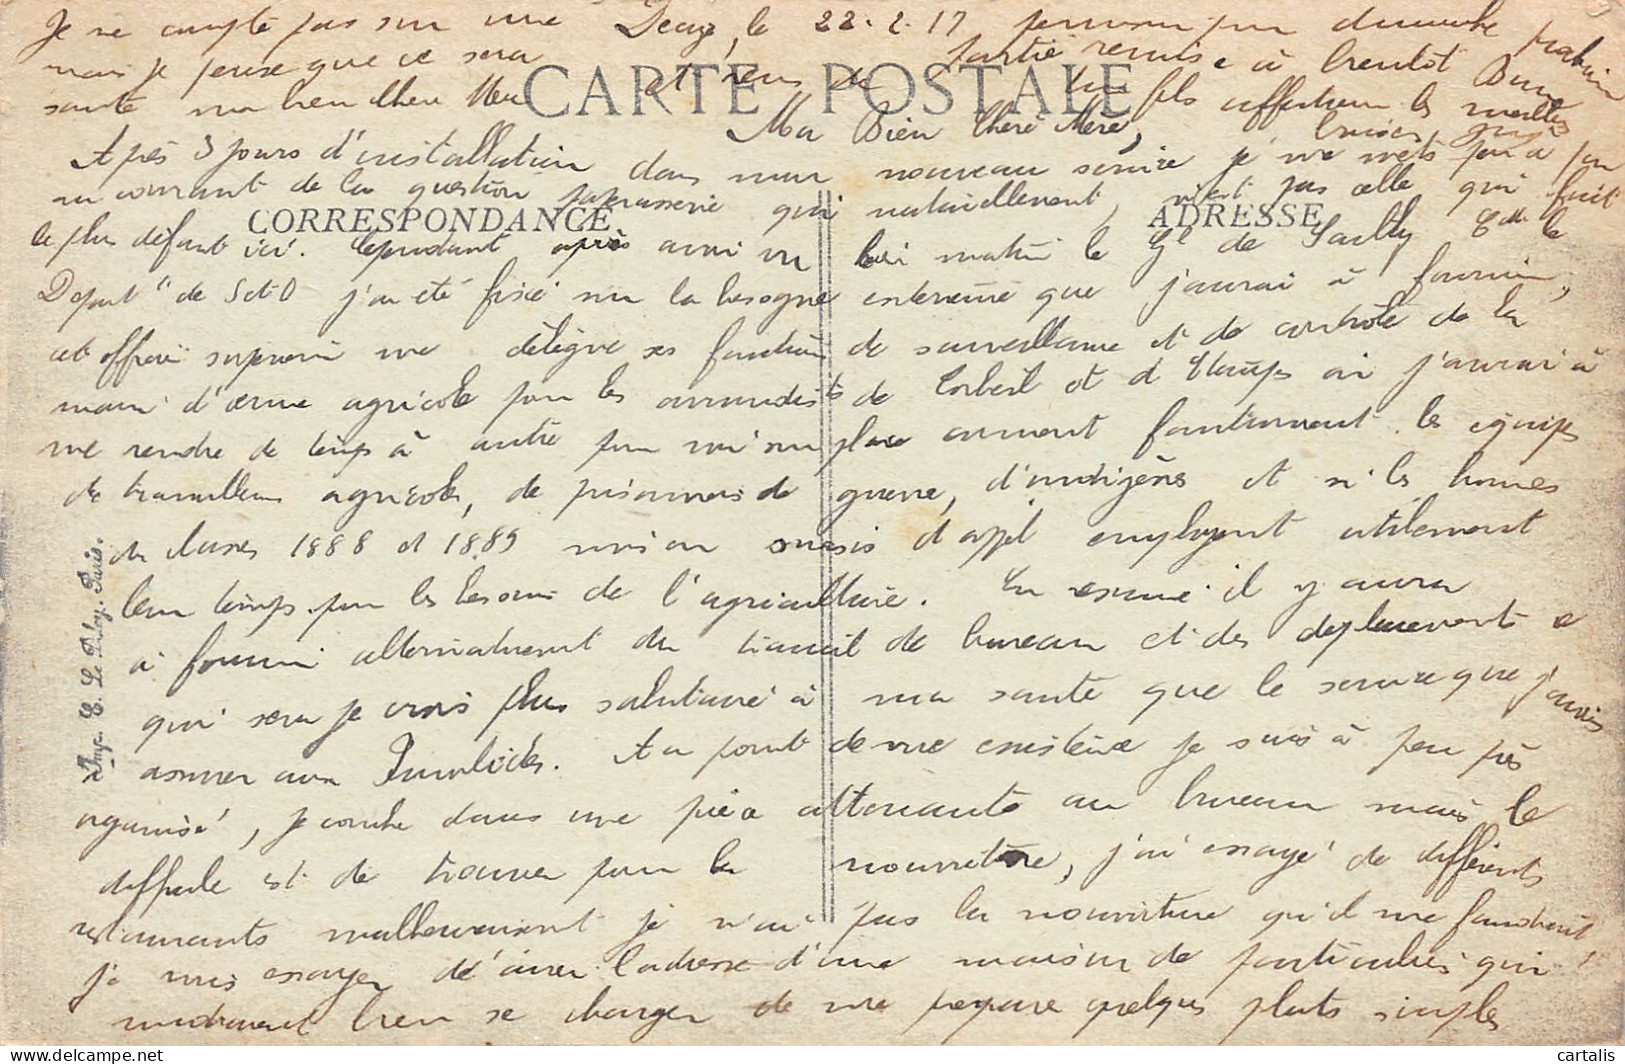 Je ne compte pas sur une permission pour dimanche prochain
mais je pense que ce sera partie remise à bientôt Bonne
santé ma bien chère Mère et reçois de ton fils affectueux les meilleurs
baisers
22.2.17
CARTE POSTALE
Ma Bien Chère Mère,
Après 3 jours d'installation dans mon nouveau service je me mets peu à peu
au courant de la question paperasserie qui naturellement, n'est pas celle qui fait
CORRESPONDANCE
ADRESSE
le plus défaut ici. Cependant après avoir vu hier matin le Gl de Sailly Cdt le
Départt de S et O j'ai été fixé sur la besogne extérieure que j'aurai à fournir,
cet officier supérieur me délègue ses fonctions de surveillance et de contrôle de la
main d'œuvre agricole pour les arrondists de Corbeil et d'Etampes où j'aurai à
me rendre de temps à autre pour voir sur place comment fonctionnent les équipes
de travailleurs agricoles, de prisonniers de guerre, d'indigènes et si les hommes
des classes 1888 et 1889 mis en sursis d'appel employent utilement
leur temps pour les besoins de l'agriculture. En résumé il y aura
à fournir alternativement du travail de bureau et des déplacements ce
qui sera je crois plus salutaire à ma santé que le service que j'avais
à assurer aux . Au point de vue existence je suis à peu près
organisé, je couche dans une pièce attenante au bureau mais le
difficile est de trouver pour la nourriture, j'ai essayé de différents
restaurants malheureusement je n'ai pas la nourriture qu'il me faudrait
je vais essayer d'avoir l'adresse d'une maison de particuliers qui
voudraient bien se charger de me préparer quelques plats simples
Imp. E. Le Deley. Paris.